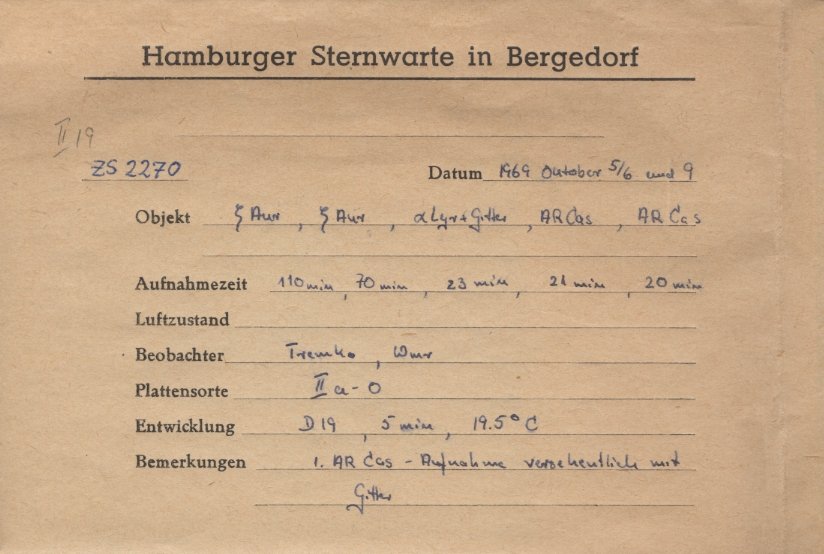 Hamburger Sternwarte in Bergedorf
II 19
ZS 2270 Datum 1969 Oktober 5/6 und 9
Objekt ζ Aur, ζ Aur, α Lyr + Gitter, AR Cas, AR Cas
Aufnahmezeit 110 min, 70 min, 23 min, 21 min, 20 min
Luftzustand
Beobachter Tremko, Wmr
Plattensorte II a-O
Entwicklung D 19, 5 min, 19.5° C
Bemerkungen 1. AR Cas - Aufnahme versehentlich mit
Gitter